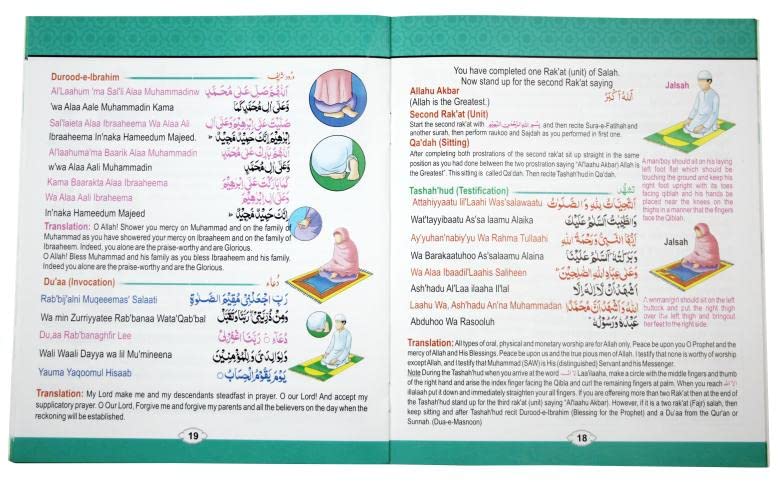 Durood-e-Ibrahim درود شریف
Al'Laahum 'ma Sal'li Alaa Muhammadinw اَللّٰهُمَّ صَلِّ عَلٰى مُحَمَّدٍ
'wa Alaa Aale Muhammadin Kama وَّعَلٰٓى اٰلِ مُحَمَّدٍ كَمَا
Sal'laieta Alaa Ibraaheema Wa Alaa Ali صَلَّيْتَ عَلٰٓى اِبْرَاهِيْمَ وَعَلٰٓى اٰلِ
Ibraaheema In'naka Hameedum Majeed. اِبْرَاهِيْمَ اِنَّكَ حَمِيْدٌ مَّجِيْدٌ
Al'laahuma'ma Baarik Alaa Muhammadin اَللّٰهُمَّ بَارِكْ عَلٰى مُحَمَّدٍ
w'wa Alaa Aali Muhammadin وَّعَلٰٓى اٰلِ مُحَمَّدٍ
Kama Baarakta Alaa Ibraaheema كَمَا بَارَكْتَ عَلٰٓى اِبْرَاهِيْمَ
Wa Alaa Aali Ibraheema وَعَلٰٓى اٰلِ اِبْرَاهِيْمَ
In'naka Hameedum Majeed اِنَّكَ حَمِيْدٌ مَّجِيْدٌ
Translation: O Allah! Shower you mercy on Muhammad and on the family of
Muhammad as you have showered your mercy on Ibraaheem and on the family of
Ibraaheem. Indeed, you alone are the praise-worthy and are Glorious.
O Allah! Bless Muhammad and his family as you bless Ibraaheem and his family.
Indeed you alone are the praise-worthy and are the Glorious.
Du'aa (Invocation) دُعاء
Rab'bij'alni Muqeeemas' Salaati رَبِّ اجْعَلْنِيْ مُقِيْمَ الصَّلٰوةِ
Wa min Zurriyyatee Rab'banaa Wata'Qab'bal وَمِنْ ذُرِّيَّتِيْ رَبَّنَا وَتَقَبَّلْ
Du,aa Rab'banaghfir Lee دُعَآءِ رَبَّنَا اغْفِرْلِيْ
Wali Waali Dayya wa lil Mu'mineena وَلِوَالِدَيَّ وَلِلْمُؤْمِنِيْنَ
Yauma Yaqoomul Hisaab يَوْمَ يَقُوْمُ الْحِسَابُ
Translation: My Lord make me and my descendants steadfast in prayer. O our Lord! And accept my
supplicatory prayer. O Our Lord, Forgive me and forgive my parents and all the believers on the day when the
reckoning will be established.
19
You have completed one Rak'at (unit) of Salah.
Now stand up for the second Rak'at saying
Allahu Akbar اَللّٰهُ اَكْبَرُ
(Allah is the Greatest.)
Second Rak'at (Unit)
Start the second rak'at with بِسْمِ اللّٰهِ الرَّحْمٰنِ الرَّحِيْمِ and then recite Sura-e-Fatihah and
another surah, then perform raukoo and Sajdah as you performed in first one.
Qa'dah (Sitting)
After completing both prostrations of the second rak'at sit up straight in the same
position as you had done between the two prostration saying "Al'laahu Akbar) Allah is
the Greatest". This sitting is called Qa'dah. Then recite Tashah'hud in Qa'dah.
Tashah'hud (Testification) تشہُّد
Attahiyyaatu lil'Laahi Was'salawaatu اَلتَّحِيَّاتُ لِلّٰهِ وَالصَّلَوٰتُ
Wat'tayyibaatu As'sa laamu Alaika وَالطَّيِّبٰتُ اَلسَّلَامُ عَلَيْكَ
Ay'yuhan'nabiy'yu Wa Rahma Tullaahi اَيُّهَا النَّبِيُّ وَرَحْمَةُ اللّٰهِ
Wa Barakaatuhoo As'salaamu Alaina وَبَرَكَاتُهٗ اَلسَّلَامُ عَلَيْنَا
Wa Alaa Ibaadil'Laahis Saliheen وَعَلٰى عِبَادِ اللّٰهِ الصّٰلِحِيْنَ
Ash'hadu Al'Laa ilaaha Il'lal اَشْهَدُ اَنْ لَّآ اِلٰهَ اِلَّا
Laahu Wa, Ash'hadu An'na Muhammadan اللّٰهُ وَاَشْهَدُ اَنَّ مُحَمَّدًا
Abduhoo Wa Rasooluh عَبْدُهٗ وَرَسُوْلُهٗ
Jalsah
A man/boy should sit on his laying
left foot flat which should be
touching the ground and keep his
right foot upright with its toes
facing qiblah and his hands be
placed near the knees on the
thighs in a manner that the fingers
face the Qiblah.
Jalsah
A woman/girl should sit on the left
buttock and put the right thigh
over the left thigh and bringout
her feet to the right side.
Translation: All types of oral, physical and monetary worship are for Allah only. Peace be upon you O Prophet and the
mercy of Allah and His Blessings. Peace be upon us and the true pious men of Allah. I testify that none is worthy of worship
except Allah, and I testify that Muhammad (SAW) is His (distinguished) Servant and his Messenger.
Note During the Tashah'hud when you arrive at the word لا اله Laa'ilaaha, make a circle with the middle fingers and thumb
of the right hand and arise the index finger facing the Qibla and curl the remaining fingers at palm. When you reach الا الله
illalaah put it down and immediately straighten your all fingers. If you are offereing more than two Rak'at then at the end of
the Tashah'hud stand up for the third rak'at (unit) saying "Al'laahu Akbar). However, if it is a two rak'at (Fajr) salah, then
keep sitting and after Tashah'hud recit Durood-e-Ibraheem (Blessing for the Prophet) and a Du'aa from the Qur'an or
Sunnah. (Dua-e-Masnoon)
18